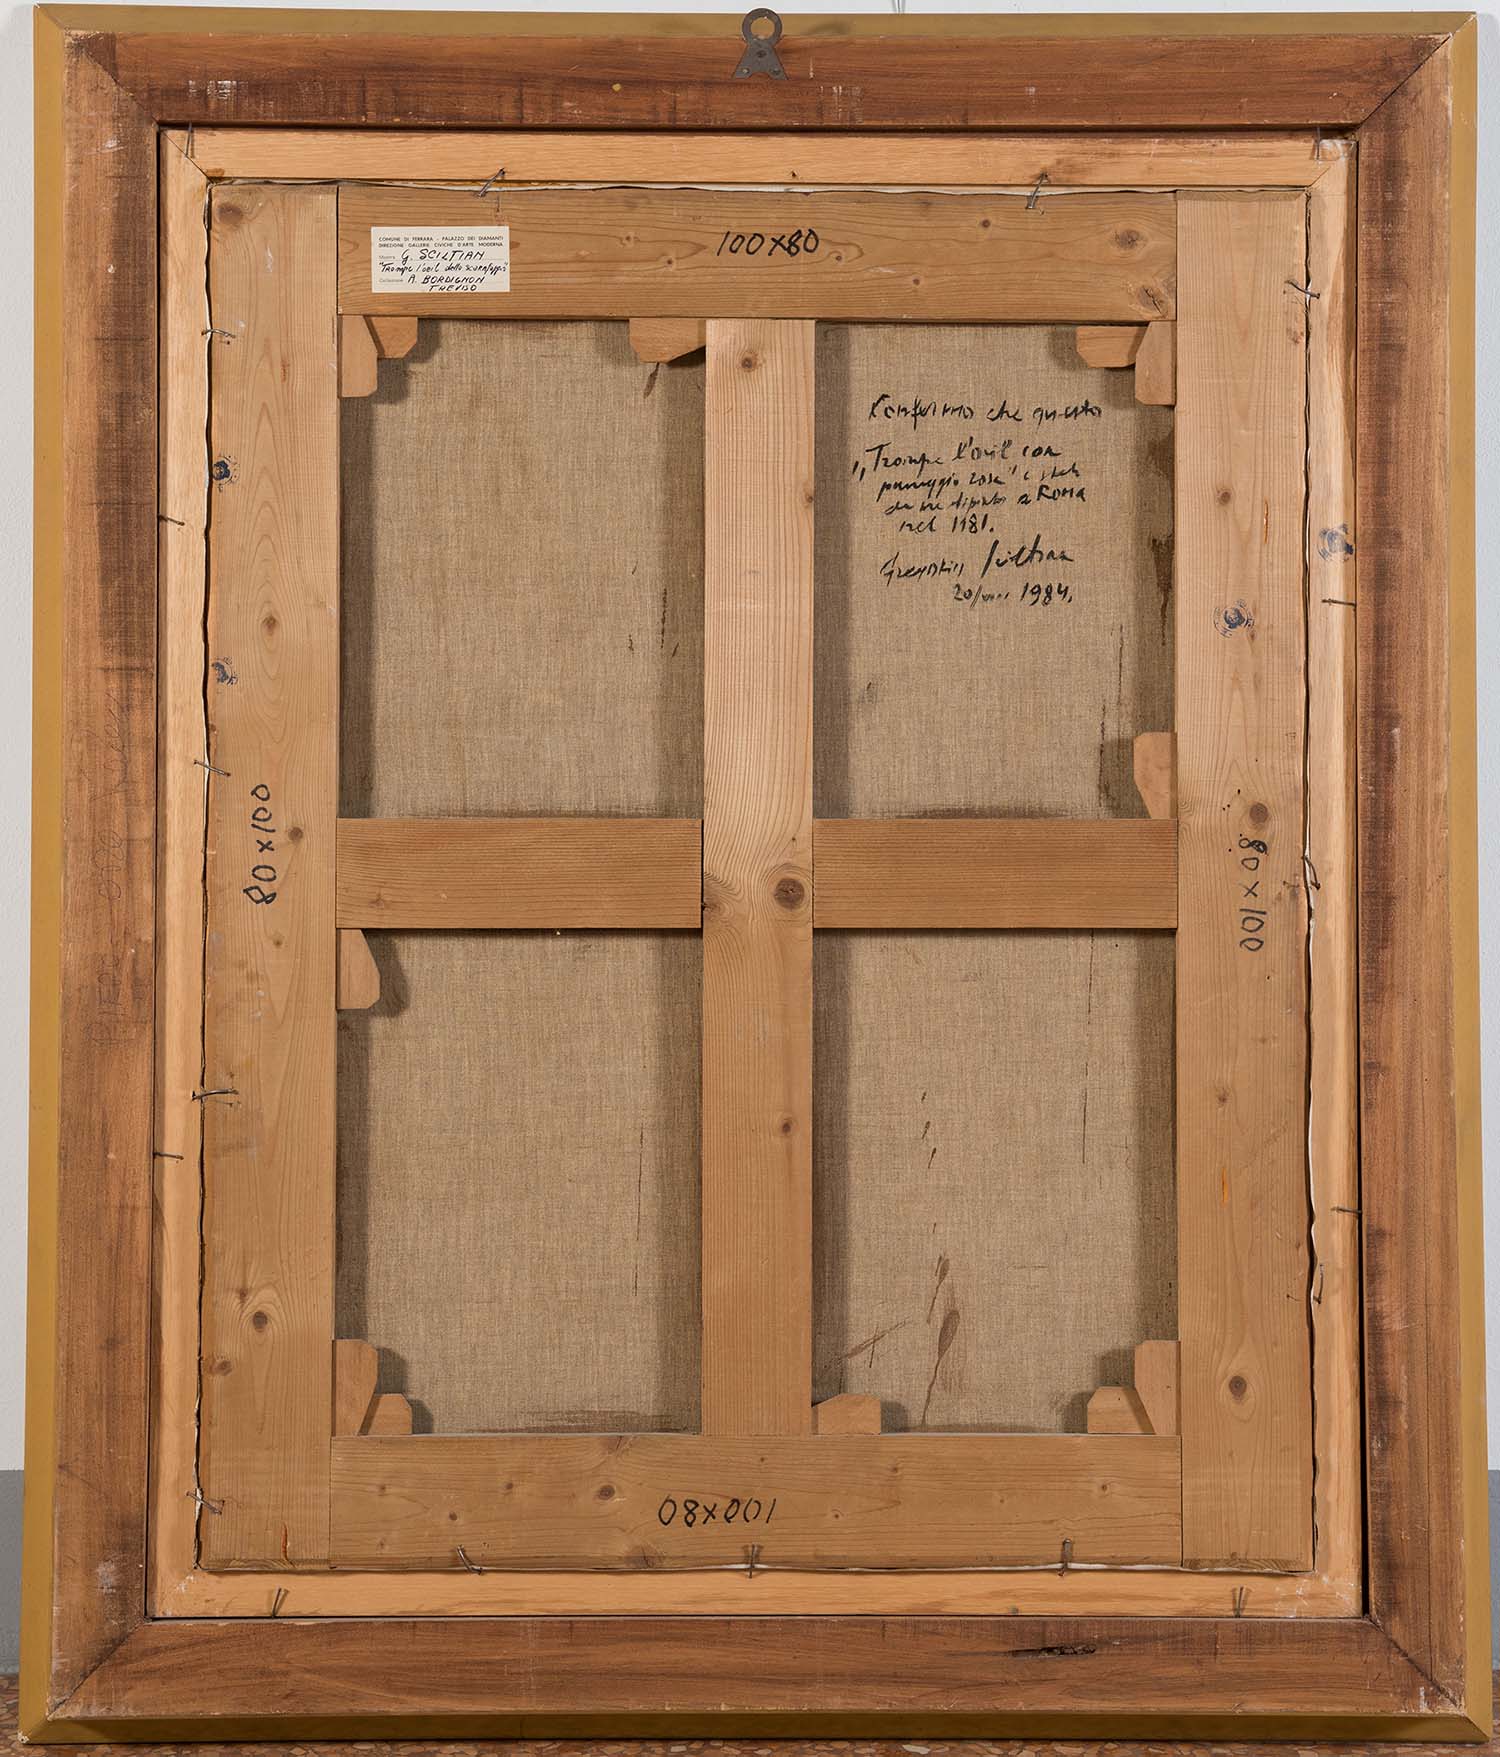 COMUNE DI FERRARA - PALAZZO DEI DIAMANTI
DIREZIONE GALLERIE CIVICHE D'ARTE MODERNA
Mostra G. SCILTIAN
"Trompe l'oeil dello scarafaggio"
Collezione A. BORDIGNON
TREVISO
100x80
Confermo che questo
"Trompe l'oeil con
paneggio rosa" è stato
da me dipinto a Roma
nel 1981.
Gregorio Sciltian
20/ 1984.
80x100
80x100
100x80